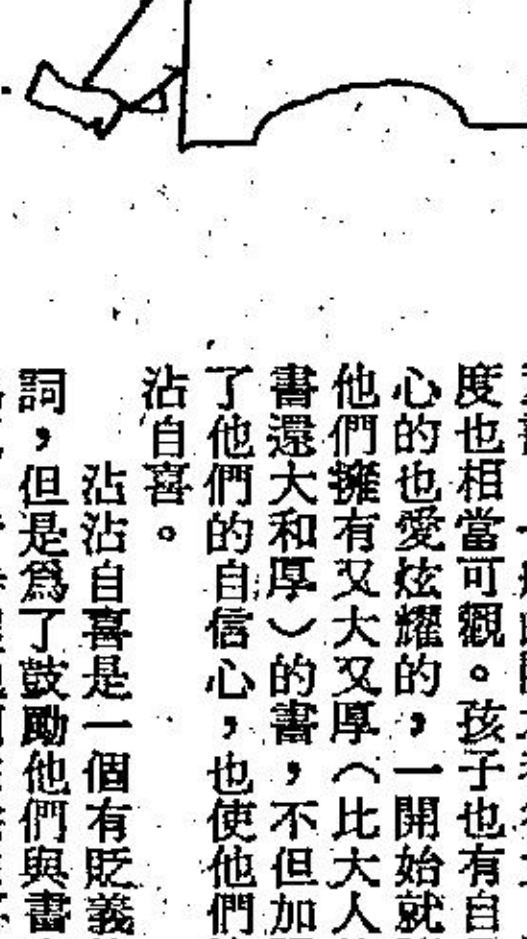 度也相當可觀。孩子也有自
心的也愛炫耀的，一開始就
他們擁有又大又厚（比大人
書還大和厚）的書，不但加
了他們的自信心，也使他們
沾自喜。
沾沾自喜是一個有貶義
詞，但是爲了鼓勵他們與書